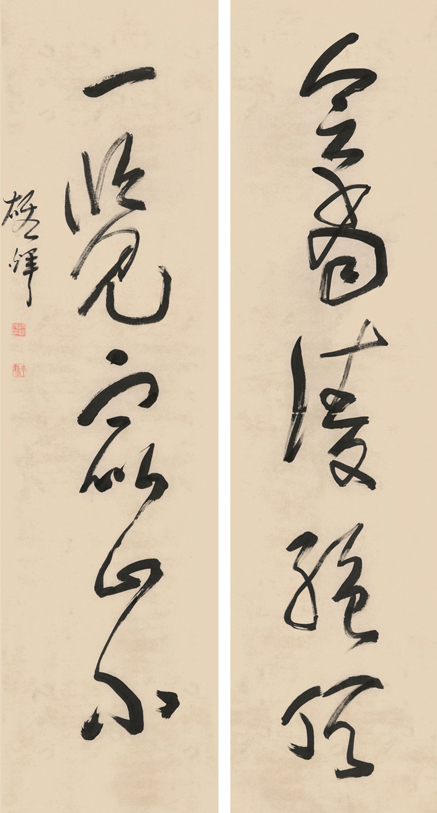 會當凌絕頂
一覽眾山小